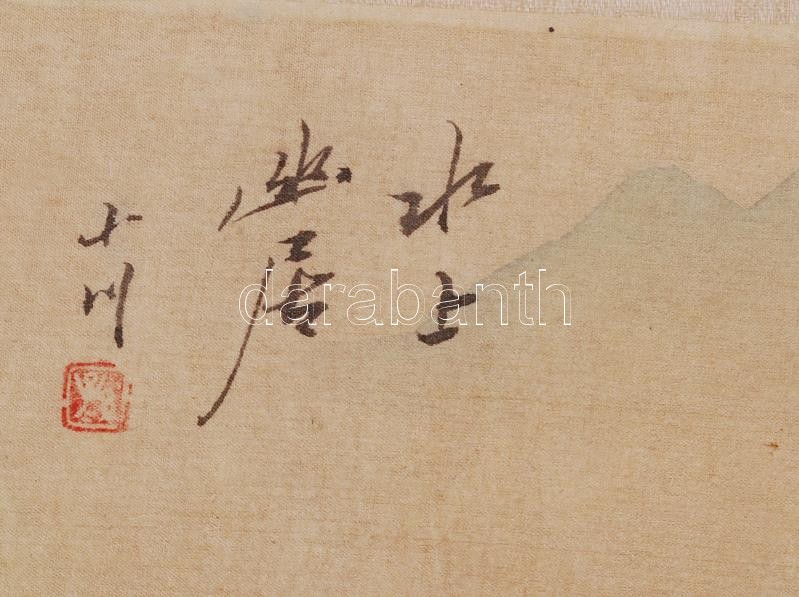 水上
幽居
小川
darabanth